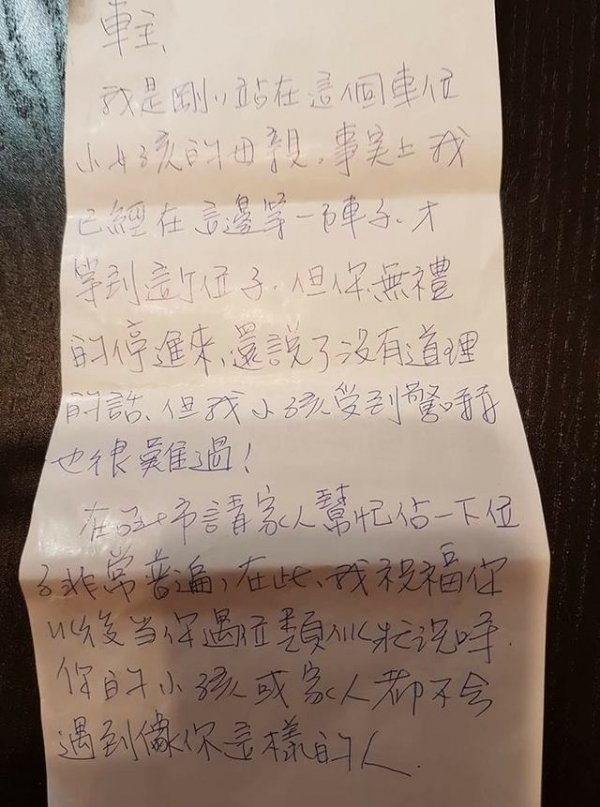 車主、
我是剛剛站在這個車位
小女孩的母親，事実上我
已經在這邊等一陣子、才
等到這个位子，但你無禮
的停進來，還說了沒有道理
的話、但我小孩受到驚嚇
也很難過！
在 市請家人幫忙佔一下位
子非常普遍，在此、我祝福你
以後當你遇 類似 時，
你的小孩或家人都不会
遇到像你這樣的人．